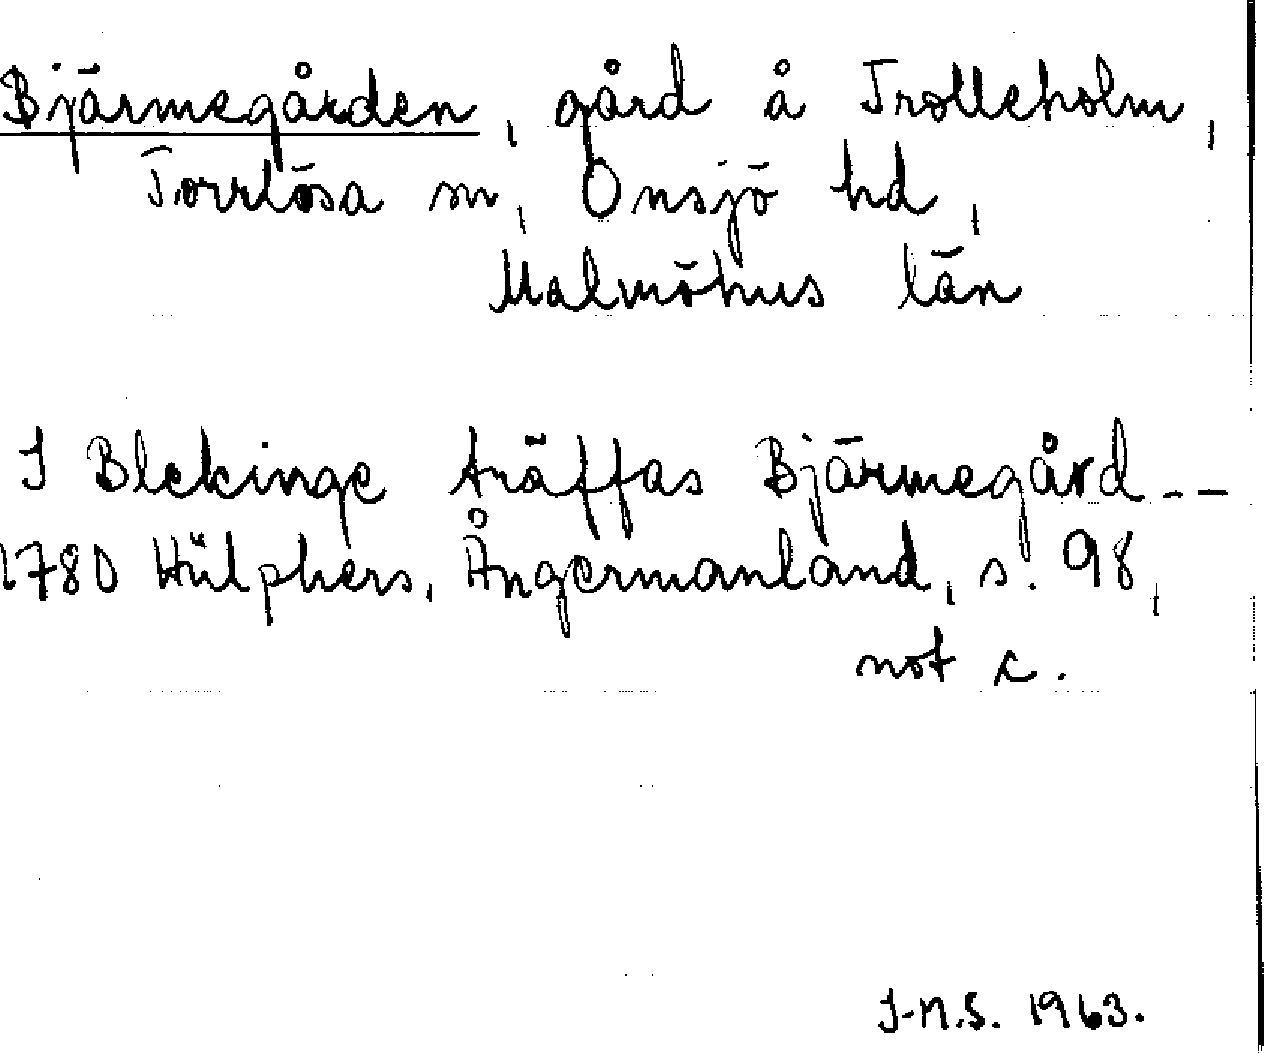 Bjärmegården, gård å Trolleholm,
Torrlösa sn, Onsjö hd,
Malmöhus län
I Blekinge träffas Bjärmegård --
1780 Hülphers, Ångermanland, s. 98,
not c.
J-N.S. 1963.